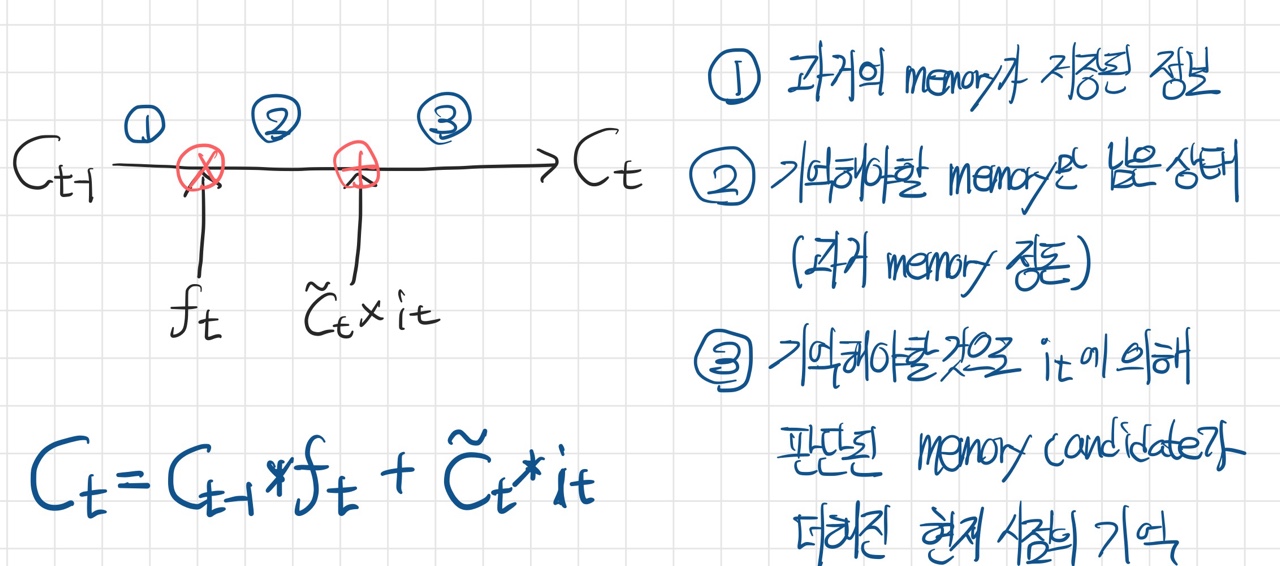 ① ② ③
C_{t-1} × + C_t
f_t C̃_t × i_t
C_t = C_{t-1} * f_t + C̃_t * i_t
① 과거의 memory가 저장된 정보
② 기억해야할 memory만 남은 상태
(과거 memory 정돈)
③ 기억해야할것으로 i_t에 의해
판단된 memory candidate가
더해진 현재 시점의 기억